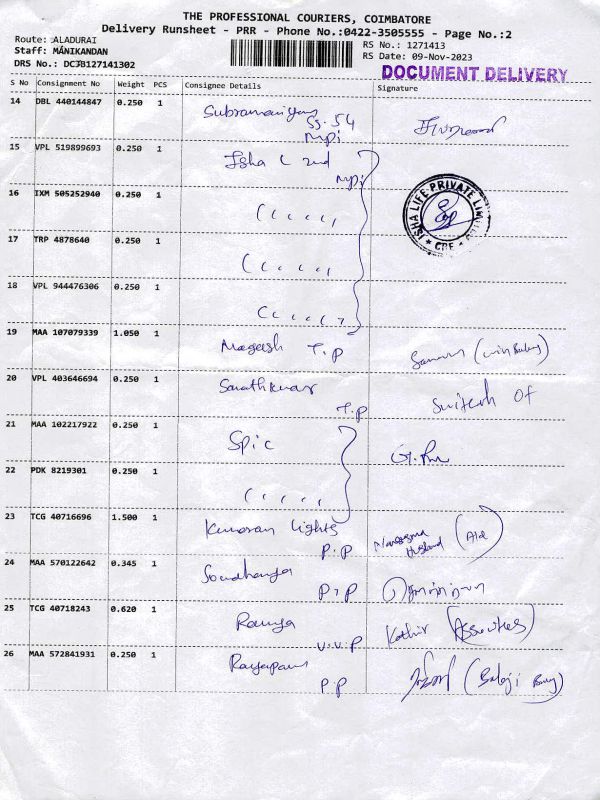 THE PROFESSIONAL COURIERS, COIMBATORE
Delivery Runsheet - PRR - Phone No.:0422-3505555 - Page No.:2
Route: ALADURAI
Staff: MANIKANDAN
DRS No.: DCJB127141302
RS No.: 1271413
RS Date: 09-Nov-2023
DOCUMENT DELIVERY
S No Consignment No Weight PCS Consignee Details Signature
14 DBL 440144847 0.250 1
SS. 54
mpi
15 VPL 519899693 0.250 1 Isha L 2nd
mpi
ISHA LIFE PRIVATE
CBE
16 IXM 505252940 0.250 1
17 TRP 4878640 0.250 1
18 VPL 944476306 0.250 1
19 MAA 107079339 1.050 1 Magesh T.P
20 VPL 403646694 0.250 1 Sarathkumar
T.P
21 MAA 102217922 0.250 1 Spic
22 PDK 8219301 0.250 1
23 TCG 40716696 1.500 1 Kumaran Lights
P.P
Husband
24 MAA 570122642 0.345 1 Soudhanya
P.P
25 TCG 40718243 0.620 1 Ramya Kathir (Associates)
V.V.P
26 MAA 572841931 0.250 1 (Balaji
P.P